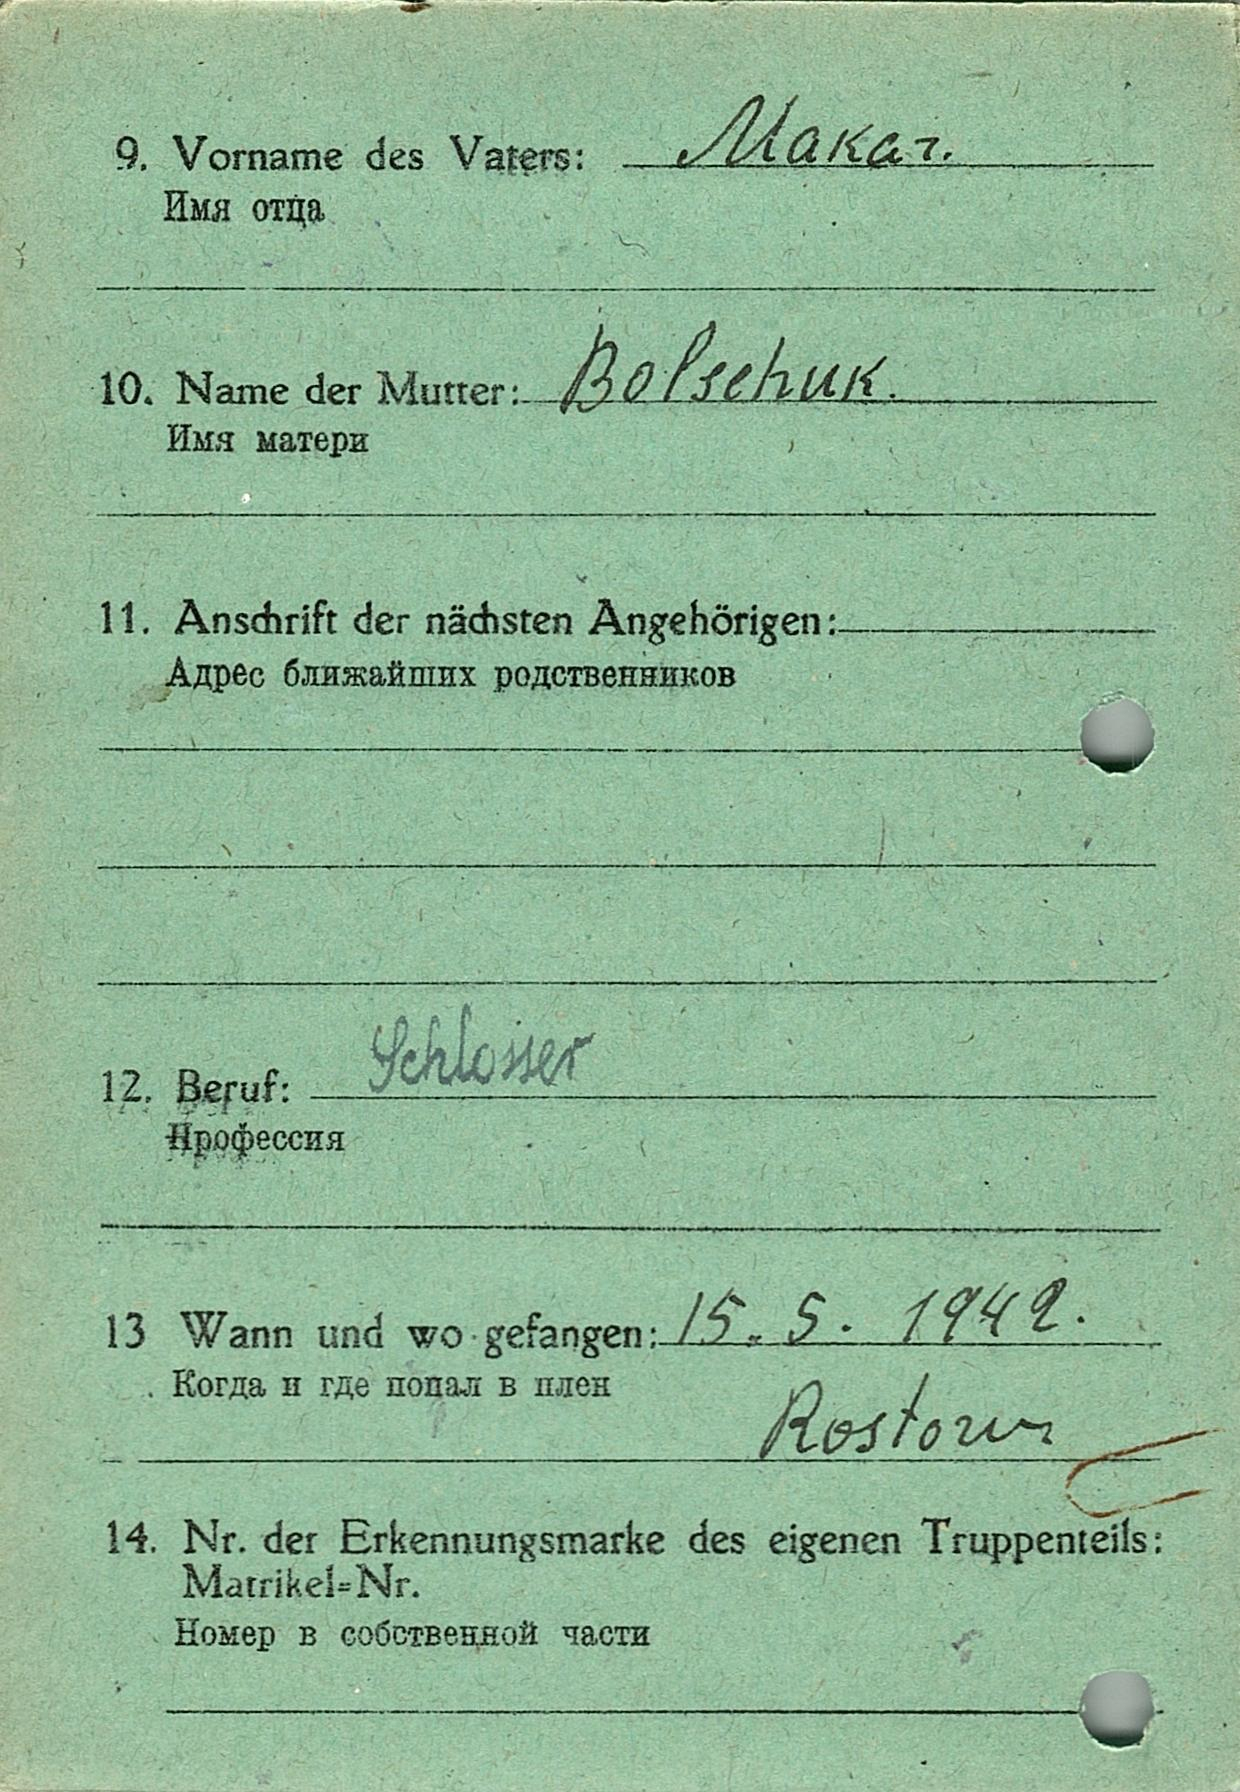 9. Vorname des Vaters: Makar.
Имя отца
10. Name der Mutter: Bolschuk.
Имя матери
11. Anschrift der nächsten Angehörigen:
Адрес ближайших родственников
12. Beruf: Schlosser
Нрофессия
13 Wann und wo gefangen: 15. 5. 1942.
Когда и где попал в плен
Rostow
14. Nr. der Erkennungsmarke des eigenen Truppenteils:
Matrikel=Nr.
Номер в собственной части